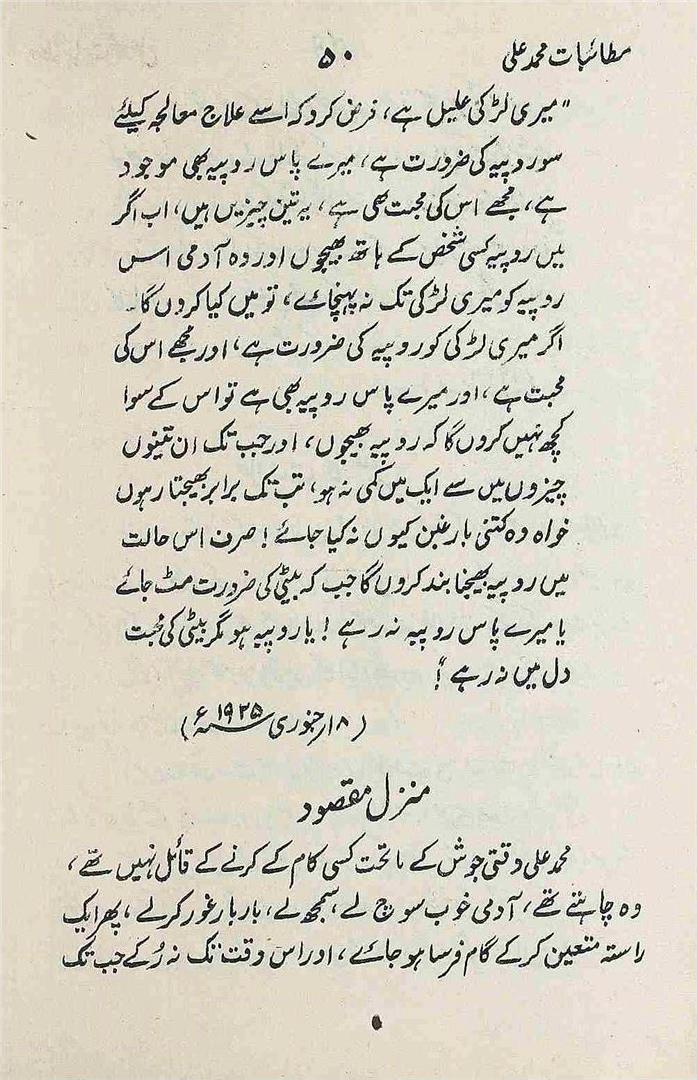 مطائبات محمد علی
۵۰
"میری لڑکی علیل ہے، فرض کرو کہ اسے علاج معالجہ کیلئے
سو روپیہ کی ضرورت ہے، میرے پاس روپیہ بھی موجود
ہے، مجھے اس کی محبت بھی ہے، یہ تین چیزیں ہیں، اب اگر
میں روپیہ کسی شخص کے ہاتھ بھیجوں اور وہ آدمی اس
روپیہ کو میری لڑکی تک نہ پہنچائے، تو میں کیا کروں گا۔
اگر میری لڑکی کو روپیہ کی ضرورت ہے، اور مجھے اس کی
محبت ہے، اور میرے پاس روپیہ بھی ہے تو اس کے سوا
کچھ نہیں کروں گا کہ روپیہ بھیجوں، اور جب تک ان تینوں
چیزوں میں سے ایک میں کمی نہ ہو، تب تک برابر بھیجتا رہوں
خواہ وہ کتنی بار غبن کیوں نہ کیا جائے! صرف اس حالت
میں روپیہ بھیجنا بند کروں گا جب کہ بیٹی کی ضرورت مٹ جائے
یا میرے پاس روپیہ نہ رہے! یا روپیہ ہو مگر بیٹی کی محبت
دل میں نہ رہے؟"
(۱۸ر جنوری ۱۹۲۵ء)
منزل مقصود
محمد علی وقتی جوش کے ماتحت کسی کام کے کرنے کے قائل نہیں تھے،
وہ چاہتے تھے، آدمی خوب سوچ لے، سمجھ لے، بار بار غور کر لے، پھر ایک
راستہ متعین کر کے گام فرسا ہو جائے، اور اس وقت تک نہ رُکے جب تک